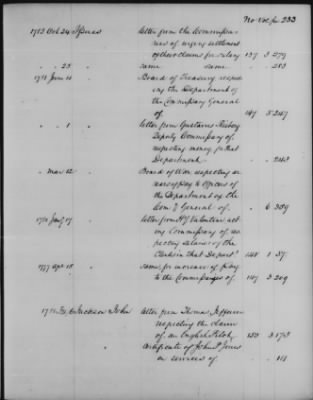 No Vol p 283
1783 Oct 24 letter from the
of urging settlement
of their claims for salary 137 3 279
" 25 " same same " " 283
Board of Treasury
ing the Department of
the Commissary General
of 147 5 247
" 1 " letter from Gustavus Risberg
Deputy Commissary of
respecting money for that
Department 243
" Mar 12 " Board of War respecting an
to Officers of
the Department of the
Com'y General of " 6 389
letter from
ing Commissary of
pecting salaries of the
Clerks in that Depart't 148 1 37
1777 Apr 18 " same for increase of pay
to the Commissaries of 147 3 269
Jackson John letter from Thomas Jefferson
respecting the claim
of an English Pilot
certificate of John P Jones
on services of 111